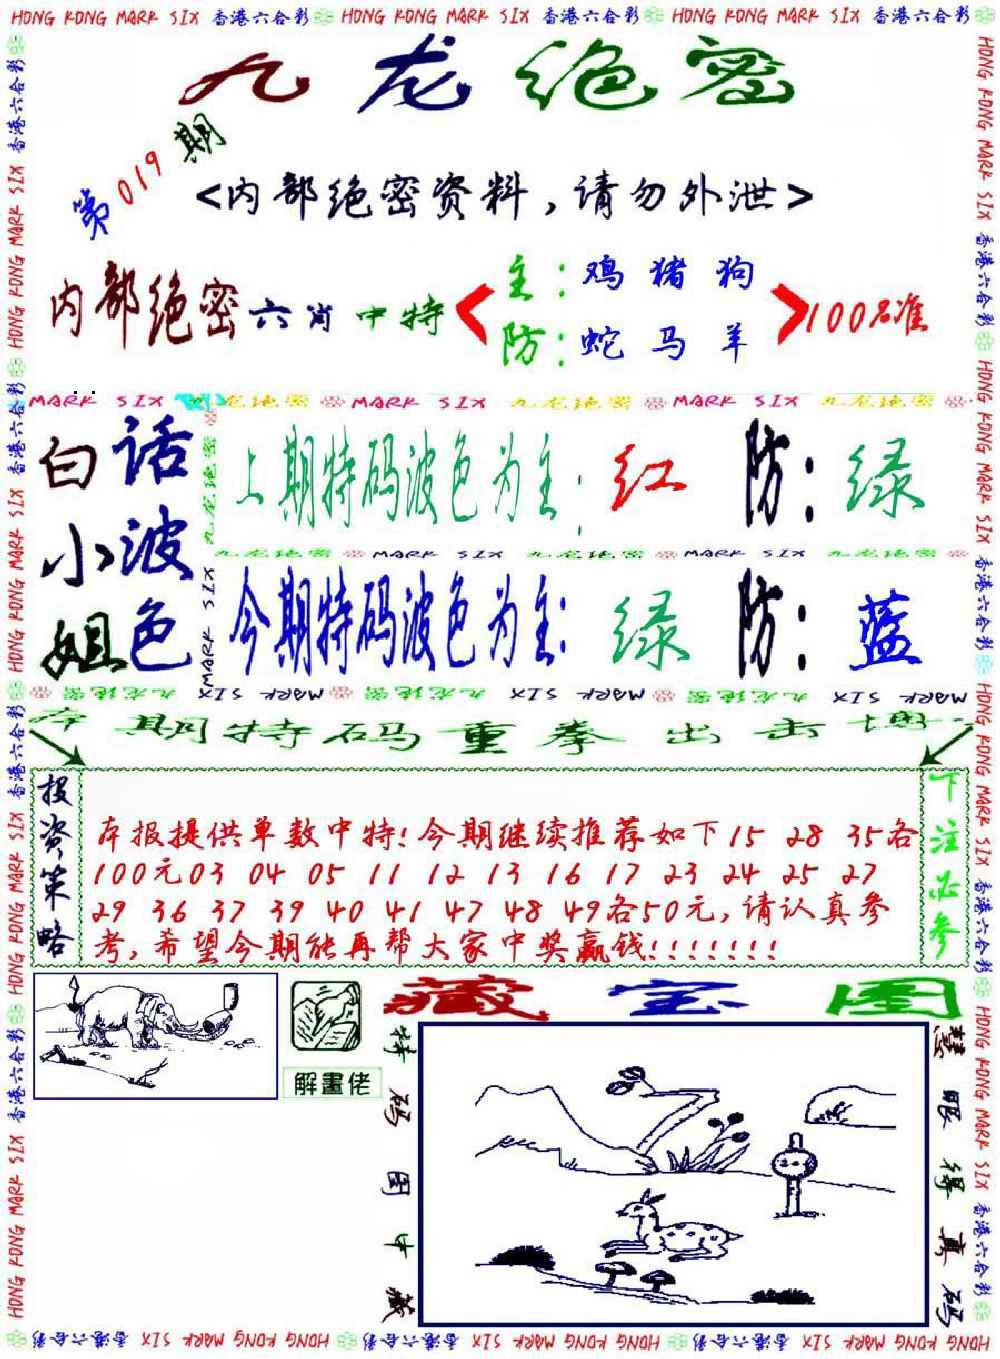 HONG KONG MARK SIX 香港六合彩 HONG KONG MARK SIX 香港六合彩 HONG KONG MARK SIX 香港六合彩
九龙绝密
第019期
<内部绝密资料,请勿外泄>
内部绝密六肖中特
主:鸡猪狗
防:蛇马羊
100%准
MARK SIX 九龙绝密 MARK SIX 九龙绝密 MARK SIX 九龙绝密
白小姐
话波色
上期特码波色为主: 红 防: 绿
九龙绝密 MARK SIX 九龙绝密 MARK SIX 九龙绝密
今期特码波色为主: 绿 防: 蓝
九龙绝密 MARK SIX 九龙绝密 MARK SIX 九龙绝密 MARK SIX
本期特码重拳出击
投资策略
本报提供单数中特!今期继续推荐如下15 28 35各
100元03 04 05 11 12 13 16 17 23 24 25 27
29 36 37 39 40 41 47 48 49各50元,请认真参
考,希望今期能再帮大家中奖赢钱!!!!!!!
下注必参
藏宝图
解畫佬
特码图中藏
慧眼得真码
香港六合彩 HONG KONG MARK SIX 香港六合彩 HONG KONG MARK SIX 香港六合彩 HONG KONG MARK SIX